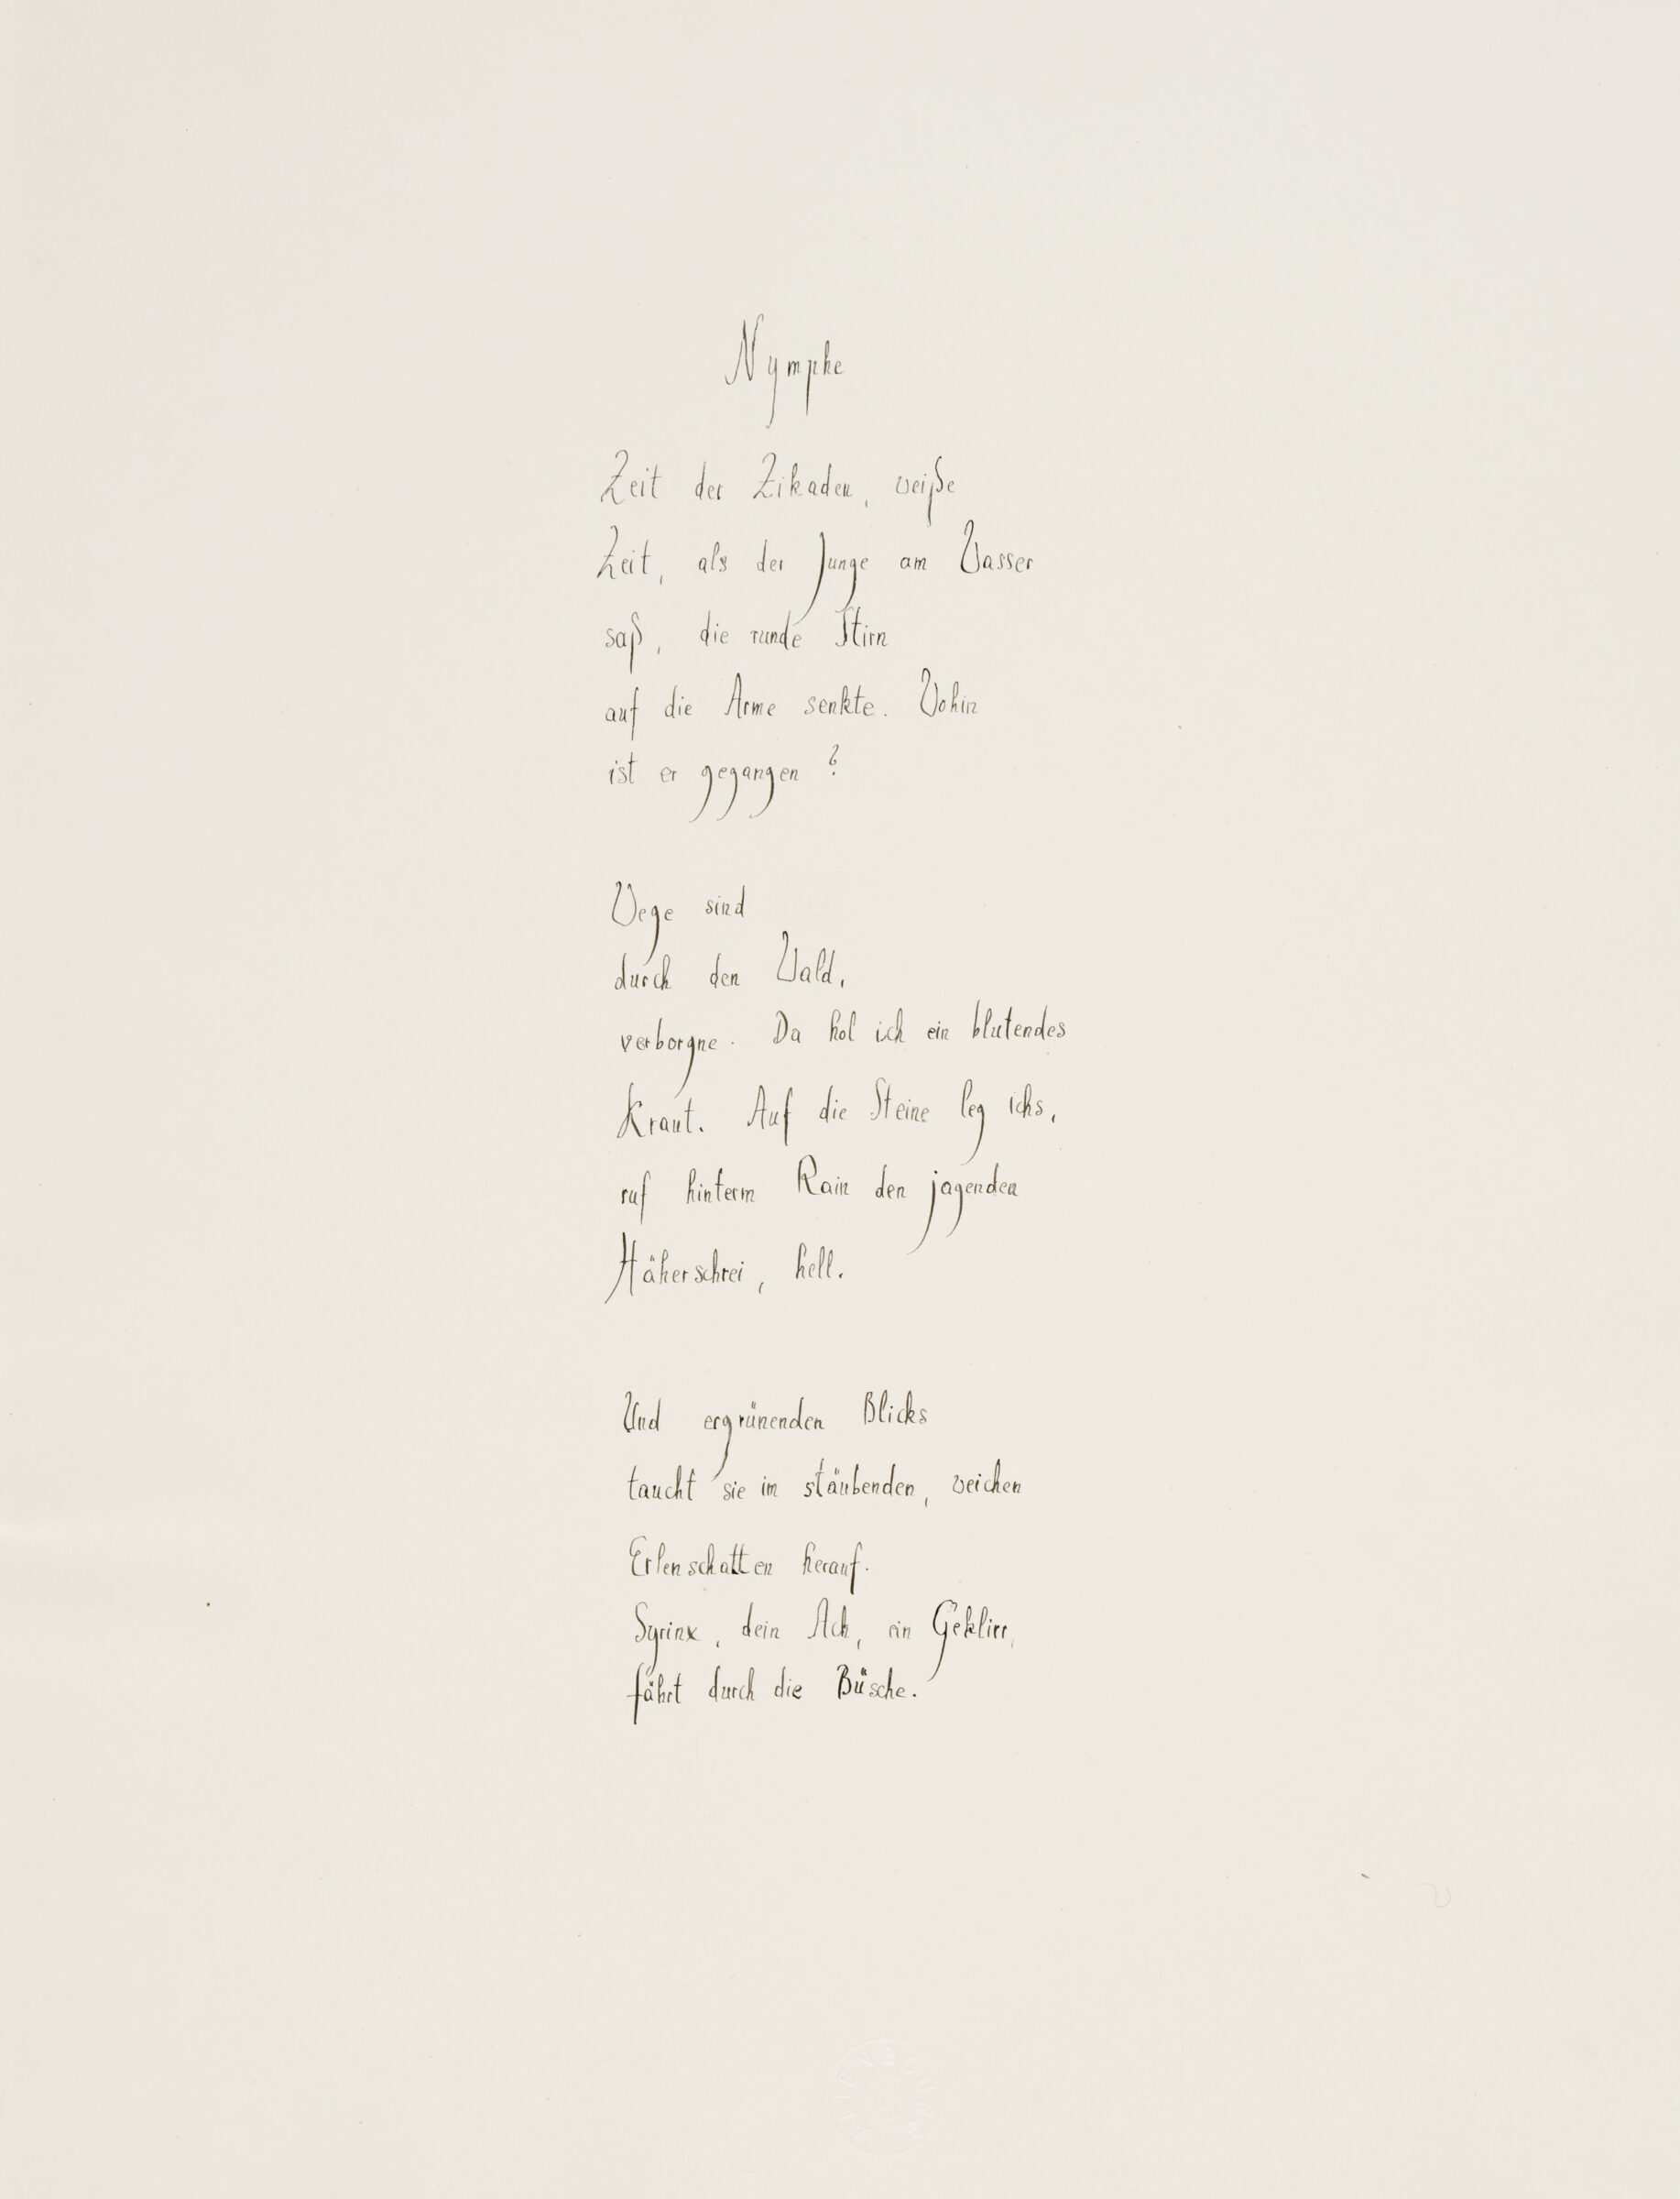 Nymphe
Zeit der Zikaden, weiße
Zeit, als der Junge am Wasser
saß, die runde Stirn
auf die Arme senkte. Wohin
ist er gegangen?
Wege sind
durch den Wald,
verborgne. Da hol ich ein blutendes
Kraut. Auf die Steine leg ichs,
ruf hinterm Rain den jagenden
Häherschrei, hell.
Und ergrünenden Blicks
taucht sie im stäubenden, weichen
Erlenschatten herauf.
Syrinx, dein Ach, ein Geklirr,
fährt durch die Büsche.